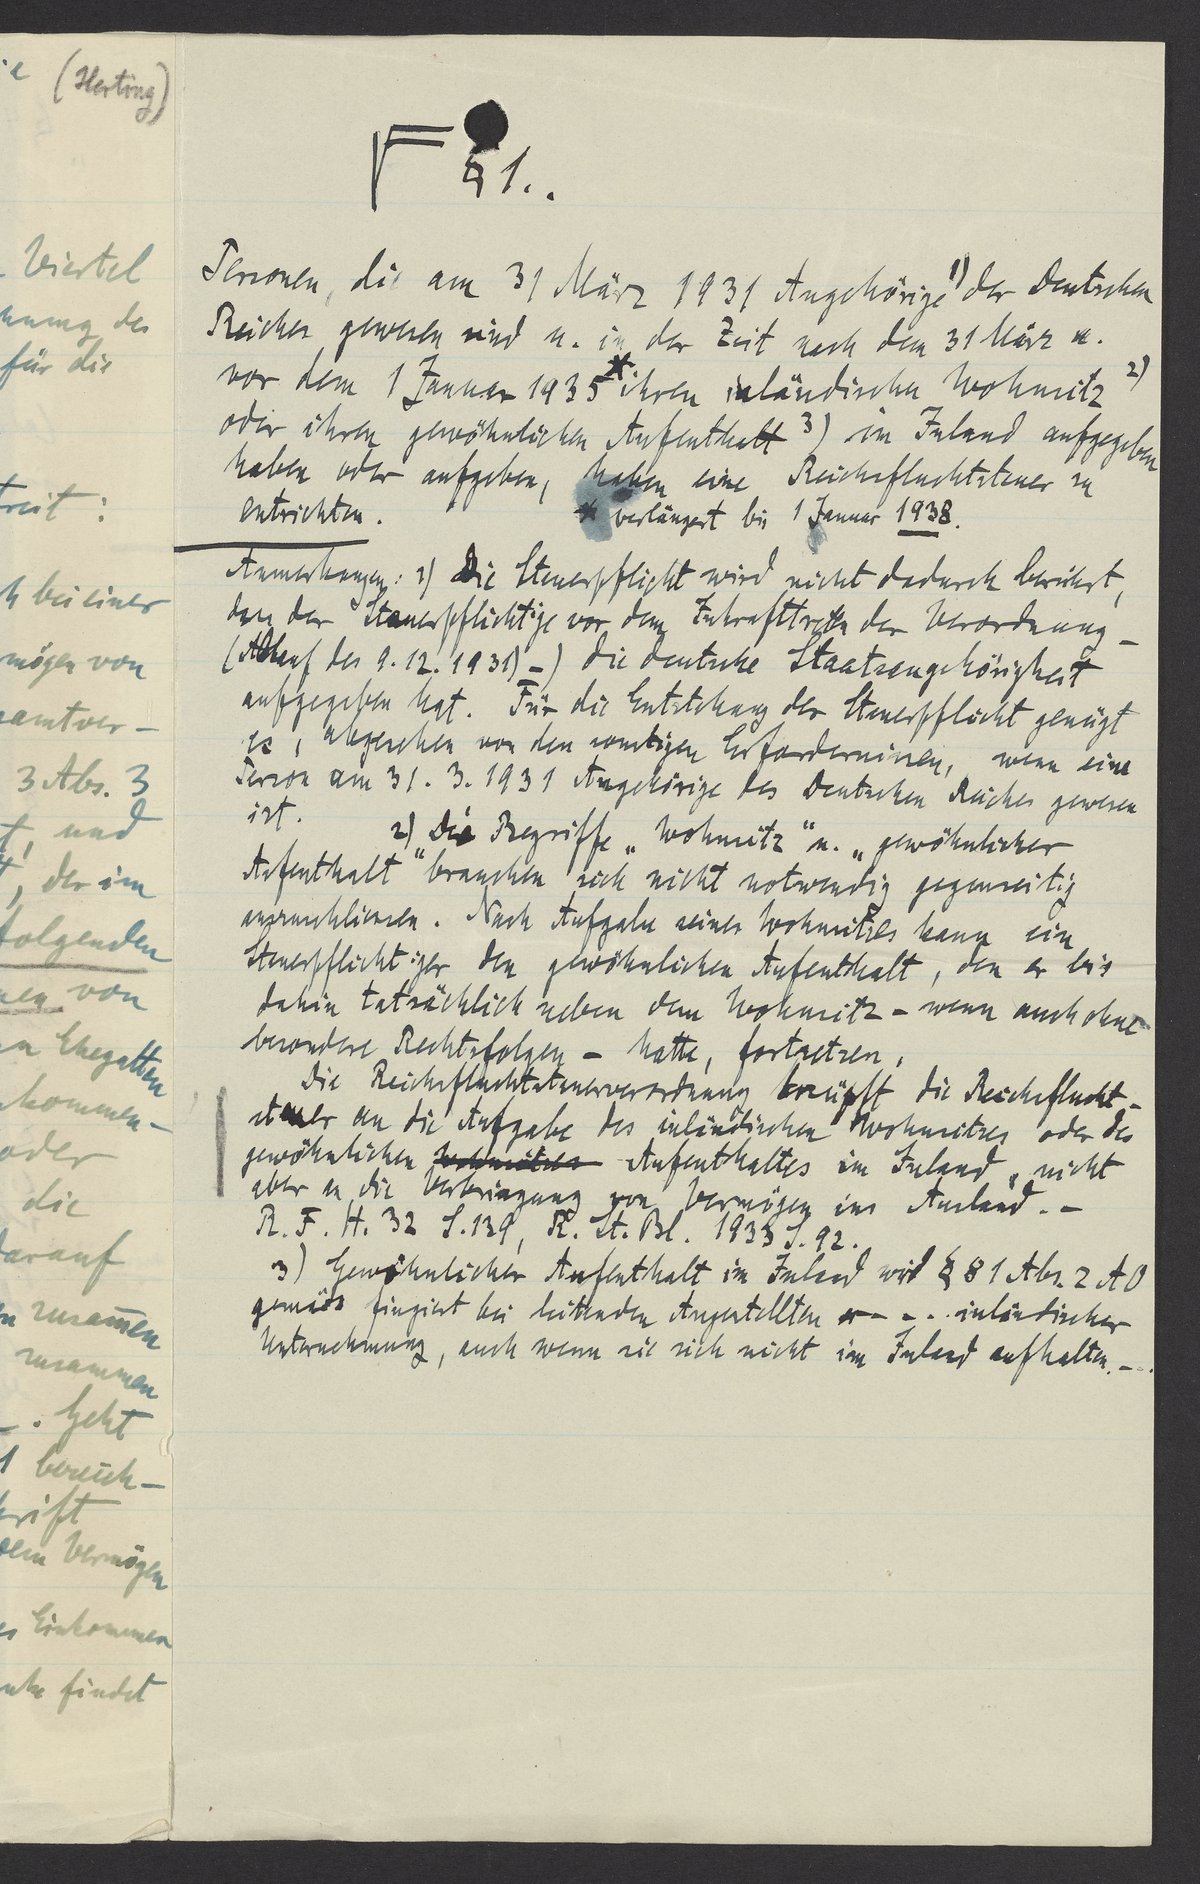 (Herting)
Viertel
nung des
für die
treit:
h bei einer
mögen von
samtver-
3 Abs. 3
t, und
, der im
folgenden
nen von
n Ehegatten
kommen-
oder
die
darauf
n zusam̄en
zusammen
. Geht
1 bezeich-
hrift
dem Vermögen
es Einkommen
findet
§ 1.
Personen, die am 31 März 1931 Angehörige 1) des Deutschen
Reiches gewesen sind u. in der Zeit nach dem 31 März u.
vor dem 1 Januar 1935 * ihren inländischen Wohnsitz 2)
oder ihren gewöhnlichen Aufenthalt 3) im Inland aufgegeben
haben oder aufgeben, haben eine Reichsfluchtsteuer zu
entrichten.
* verlängert bis 1 Januar 1938.
Anmerkungen: 1) Die Steuerpflicht wird nicht dadurch berührt,
dass der Steuerpflichtige vor dem Inkrafttreten der Verordnung -
(Ablauf des 9.12.1931) -) die deutsche Staatsangehörigkeit
aufgegeben hat. Für die Entstehung der Steuerpflicht genügt
es, abgesehen von den sonstigen Erfordernissen, wenn eine
Person am 31.3.1931 Angehörige des Deutschen Reiches gewesen
ist.
2) Die Begriffe „Wohnsitz" u. „gewöhnlicher
Aufenthalt" brauchen sich nicht notwendig gegenseitig
auszuschliessen. Nach Aufgabe seines Wohnsitzes kann ein
Steuerpflichtiger den gewöhnlichen Aufenthalt, den er bis
dahin tatsächlich neben dem Wohnsitz - wenn auch ohne
besondere Rechtsfolgen - hatte, fortsetzen.
Die Reichsfluchtsteuerverordnung knüpft die Reichsflucht-
steuer an die Aufgabe des inländischen Wohnsitzes oder des
gewöhnlichen Wohnsitzes Aufenthaltes im Inland, nicht
aber an die Verbringung von Vermögen ins Ausland. -
R.F.H. 32 S.129, R.St.Bl. 1933 S.92.
3) Gewöhnlicher Aufenthalt im Inland wird § 81 Abs. 2 AO
gemäss fingiert bei leitenden Angestellten - - . . inländischer
Unternehmung, auch wenn sie sich nicht im Inland aufhalten. -